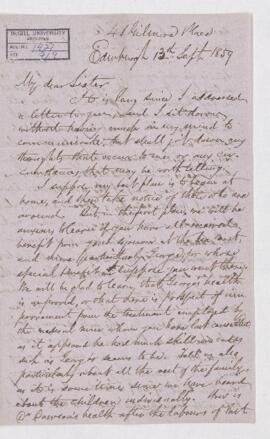 McGILL UNIVERSITY
ARCHIVES
ACC. NO. 1427
REF. 5/9
41 Gilmore Place
Edinburgh 13th Sept. 1859
My dear Sister
It is long since I addressed
a letter to you, and I sit down
without having much in my mind to
communicate, but shall jot down any
thoughts that occur to me or any cir-
cumstances that may be worth telling.
I suppose my best plan is to begin at
home, and then take notice of that
around. But in the first place, we will be
anxious to know if you have all received
benefit from your sojourn at the
and shine particularly George, for whose
special benefit we suppose you went there.
We will be glad to learn that George's health
is improved, or what there is prospect of im-
provement from the treatment employed by
the medical man whom you have last consulted
as it appears he has much skill in cases
such as George's seems to be. Tell us also
particularly about all the rest of the family,
as it is some time since we have heard
about the children individually. How is
Dr Dawson's health after the labours of that